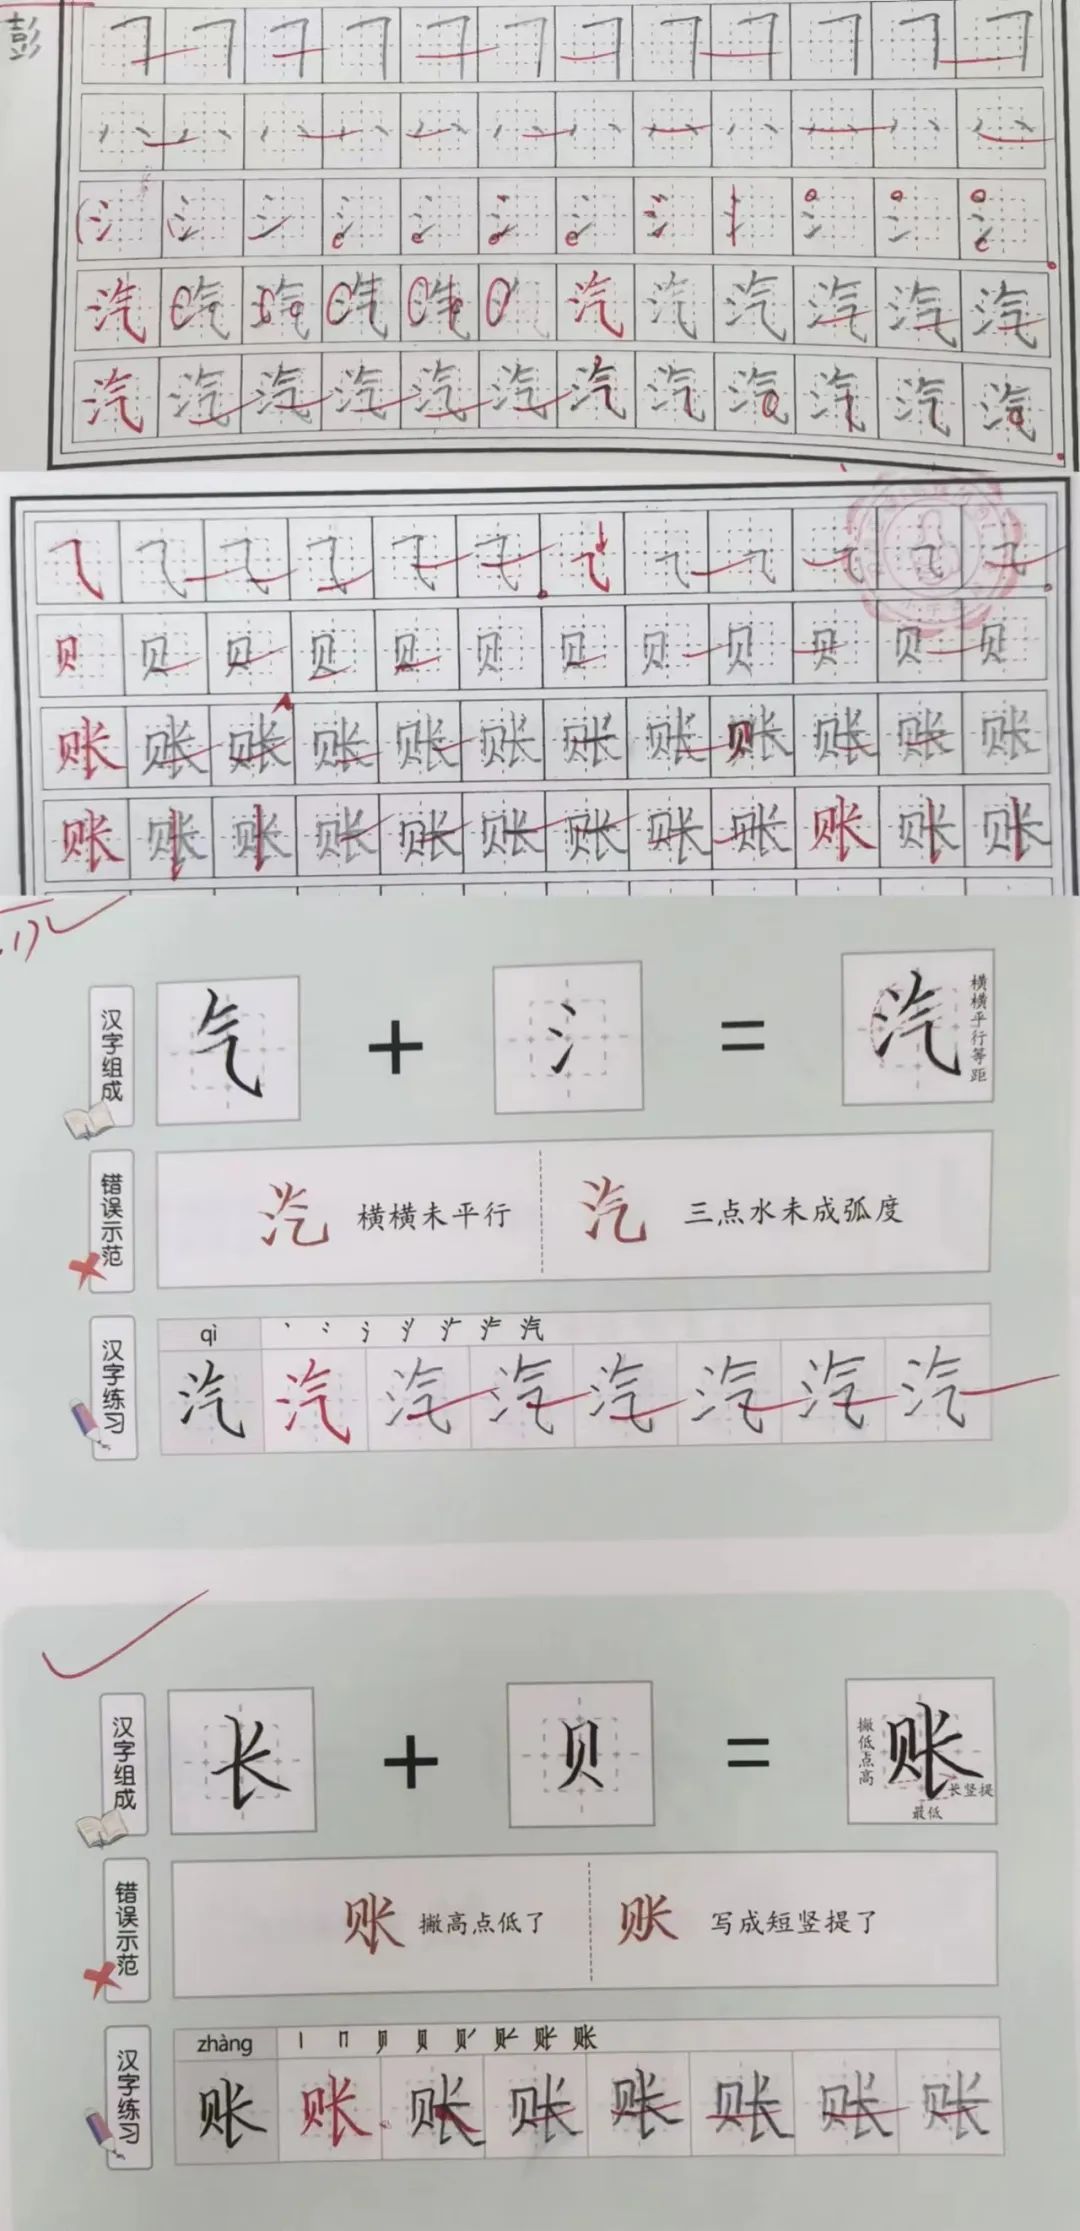 彭
汽 汽 汽 汽 汽 汽 汽 汽 汽 汽 汽
汽 汽 汽 汽 汽 汽 汽 汽 汽 汽 汽 汽
贝 贝 贝 贝 贝 贝 贝 贝 贝 贝 贝 贝
账 账 账 账 账 账 账 账 账 账 账 账
账 账 账 账 账 账 账 账 账 账 账 账
汉字组成
气 + 氵 = 汽
横横平行等距
错误示范
汽 横横未平行
汽 三点水未成弧度
汉字练习
qì
汽 汽 汽 汽 汽 汽 汽 汽
汉字组成
长 + 贝 = 账
撇低点高
长竖提
最低
错误示范
账 撇高点低了
账 写成短竖提了
汉字练习
zhàng
账 账 账 账 账 账 账 账